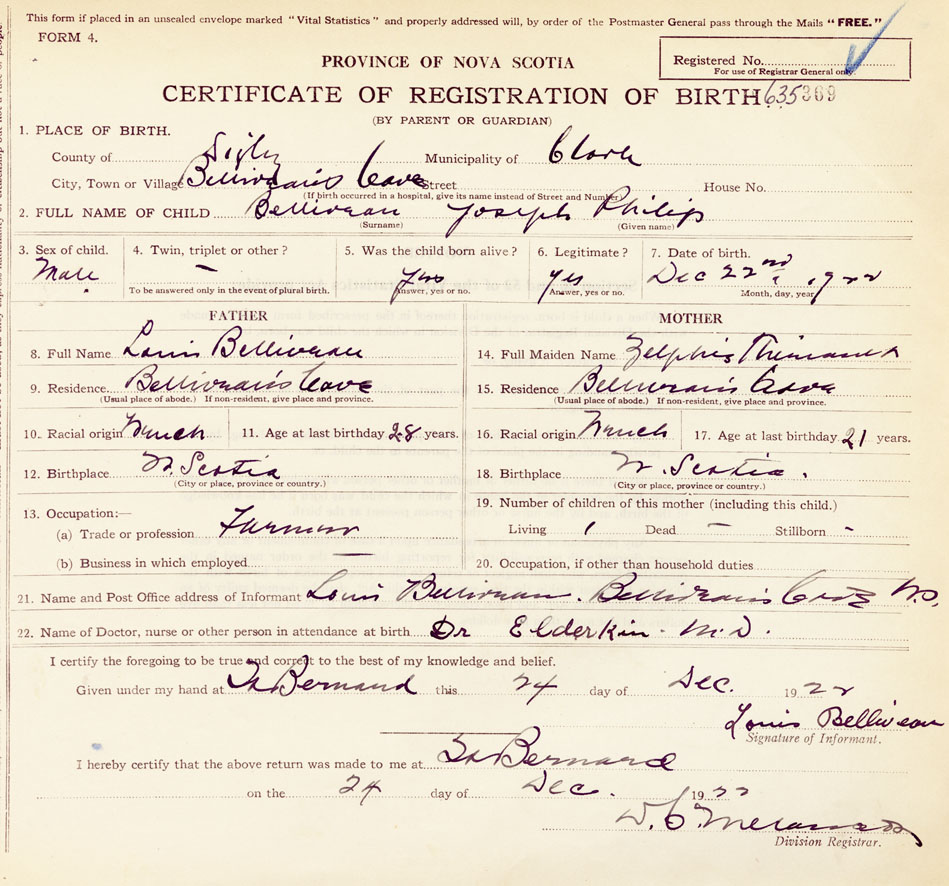 This form if placed in an unsealed envelope marked "Vital Statistics" and properly addressed will, by order of the Postmaster General pass through the Mails "FREE."
FORM 4.
Registered No.
For use of Registrar General only.
PROVINCE OF NOVA SCOTIA
CERTIFICATE OF REGISTRATION OF BIRTH 635369
(BY PARENT OR GUARDIAN)
1. PLACE OF BIRTH.
County of Digby Municipality of Clare
City, Town or Village Belliveau's Cove Street House No.
(If birth occurred in a hospital, give its name instead of Street and Number)
2. FULL NAME OF CHILD Belliveau Joseph Philip
(Surname) (Given name)
3. Sex of child. 4. Twin, triplet or other? 5. Was the child born alive? 6. Legitimate? 7. Date of birth.
Male – Yes Yes Dec 22nd, 1922
To be answered only in the event of plural birth. Answer, yes or no. Answer, yes or no. Month, day, year
FATHER MOTHER
8. Full Name Louis Belliveau 14. Full Maiden Name
9. Residence Belliveau's Cove 15. Residence Belliveau's Cove
(Usual place of abode.) If non-resident, give place and province. (Usual place of abode.) If non-resident, give place and province.
10. Racial origin French 11. Age at last birthday 28 years. 16. Racial origin French 17. Age at last birthday 21 years.
12. Birthplace N. Scotia 18. Birthplace N. Scotia.
(City or place, province or country.) (City or place, province or country.)
13. Occupation:— 19. Number of children of this mother (including this child.)
(a) Trade or profession Farmer Living 1 Dead – Stillborn -
(b) Business in which employed — 20. Occupation, if other than household duties
21. Name and Post Office address of Informant Louis Belliveau. Belliveau's Cove N.S.
22. Name of Doctor, nurse or other person in attendance at birth Dr Elderkin. M.D.
I certify the foregoing to be true and correct to the best of my knowledge and belief.
Given under my hand at St Bernard this 24 day of Dec. 1922
Louis Belliveau
Signature of Informant.
I hereby certify that the above return was made to me at St Bernard
on the 24 day of Dec. 1922
Division Registrar.